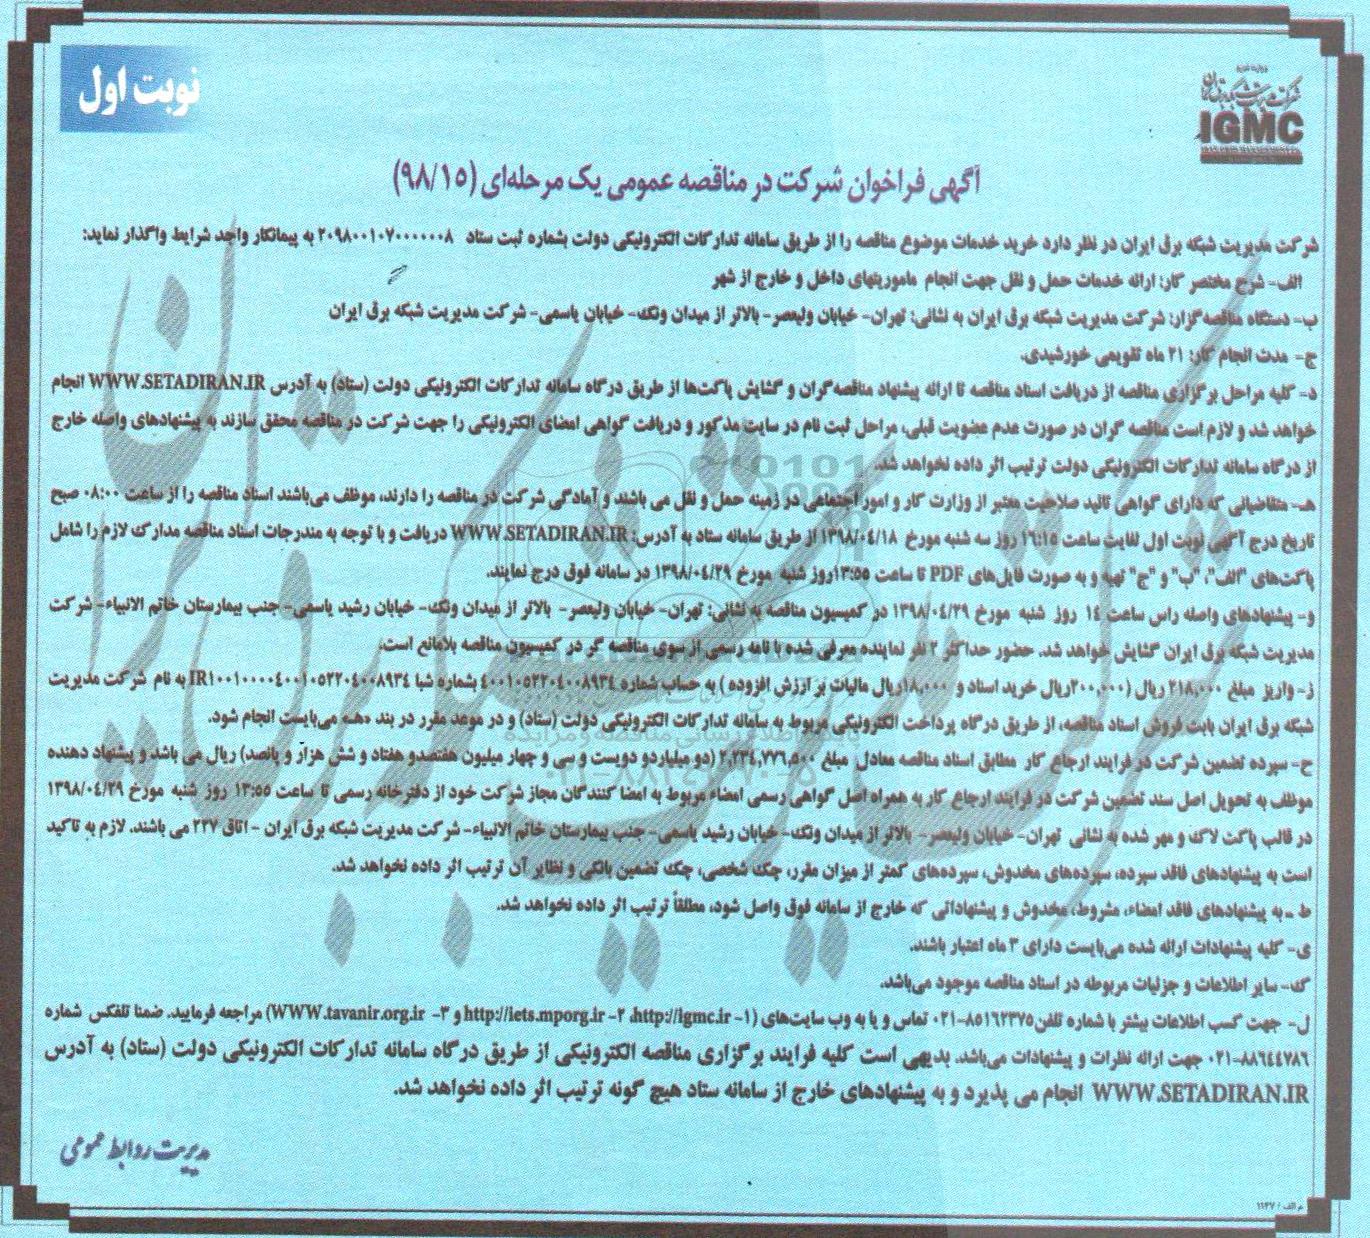 نوبت اول
وزارت نیرو
شرکت مدیریت شبکه برق ایران
IGMC
آگهی فراخوان شرکت در مناقصه عمومی یک مرحله‌ای (۹۸/۱۵)
شرکت مدیریت شبکه برق ایران در نظر دارد خرید خدمات موضوع مناقصه را از طریق سامانه تدارکات الکترونیکی دولت بشماره ثبت ستاد ۲۰۹۸۰۰۱۰۷۰۰۰۰۰۰۸ به پیمانکار واجد شرایط واگذار نماید:
الف- شرح مختصر کار: ارائه خدمات حمل و نقل جهت انجام ماموریتهای داخل و خارج از شهر
ب- دستگاه مناقصه‌گزار: شرکت مدیریت شبکه برق ایران به نشانی: تهران- خیابان ولیعصر- بالاتر از میدان ونک- خیابان یاسمی- شرکت مدیریت شبکه برق ایران
ج- مدت انجام کار: ۲۱ ماه تقویمی خورشیدی.
د- کلیه مراحل برگزاری مناقصه از دریافت اسناد مناقصه تا ارائه پیشنهاد مناقصه‌گران و گشایش پاکت‌ها از طریق درگاه سامانه تدارکات الکترونیکی دولت (ستاد) به آدرس WWW.SETADIRAN.IR انجام
خواهد شد و لازم است مناقصه گران در صورت عدم عضویت قبلی، مراحل ثبت نام در سایت مذکور و دریافت گواهی امضای الکترونیکی را جهت شرکت در مناقصه محقق سازند به پیشنهادهای واصله خارج
از درگاه سامانه تدارکات الکترونیکی دولت ترتیب اثر داده نخواهد شد.
هـ- متقاضیانی که دارای گواهی تائید صلاحیت معتبر از وزارت کار و امور اجتماعی در زمینه حمل و نقل می باشند و آمادگی شرکت در مناقصه را دارند، موظف می‌باشند اسناد مناقصه را از ساعت ۰۸:۰۰ صبح
تاریخ درج آگهی نوبت اول لغایت ساعت ۱۶:۱۵ روز سه شنبه مورخ ۱۳۹۸/۰۴/۱۸ از طریق سامانه ستاد به آدرس: WWW.SETADIRAN.IR دریافت و با توجه به مندرجات اسناد مناقصه مدارک لازم را شامل
پاکت‌های "الف"، "ب" و "ج" تهیه و به صورت فایل‌های PDF تا ساعت ۱۳:۵۵روز شنبه مورخ ۱۳۹۸/۰۴/۲۹ در سامانه فوق درج نمایند.
و- پیشنهادهای واصله راس ساعت ۱۴ روز شنبه مورخ ۱۳۹۸/۰۴/۲۹ در کمیسیون مناقصه به نشانی: تهران- خیابان ولیعصر- بالاتر از میدان ونک- خیابان رشید یاسمی- جنب بیمارستان خاتم الانبیاء- شرکت
مدیریت شبکه برق ایران گشایش خواهد شد. حضور حداکثر ۲ نفر نماینده معرفی شده با نامه رسمی از سوی مناقصه گر در کمیسیون مناقصه بلامانع است.
ز- واریز مبلغ ۲۱۸,۰۰۰ ریال (۲۰۰,۰۰۰ریال خرید اسناد و ۱۸,۰۰۰ریال مالیات بر ارزش افزوده ) به حساب شماره ۴۰۰۱۰۵۲۲۰۴۰۰۸۹۳۴ بشماره شبا IR۱۰۰۱۰۰۰۰۴۰۰۱۰۵۲۲۰۴۰۰۸۹۳۴ به نام شرکت مدیریت
شبکه برق ایران بابت فروش اسناد مناقصه، از طریق درگاه پرداخت الکترونیکی مربوط به سامانه تدارکات الکترونیکی دولت (ستاد) و در موعد مقرر در بند «هـ» می‌بایست انجام شود.
ح- سپرده تضمین شرکت در فرایند ارجاع کار مطابق اسناد مناقصه معادل مبلغ ۲,۲۳۴,۷۷۶,۵۰۰ (دو میلیاردو دویست و سی و چهار میلیون هفتصدو هفتاد و شش هزار و پانصد) ریال می باشد. و پیشنهاد دهنده
موظف به تحویل اصل سند تضمین شرکت در فرایند ارجاع کار به همراه اصل گواهی رسمی امضاء مربوط به امضا کنندگان مجاز شرکت خود از دفترخانه رسمی تا ساعت ۱۳:۵۵ روز شنبه مورخ ۱۳۹۸/۰۴/۲۹
در قالب پاکت لاک و مهر شده به نشانی تهران- خیابان ولیعصر- بالاتر از میدان ونک- خیابان رشید یاسمی- جنب بیمارستان خاتم الانبیاء- شرکت مدیریت شبکه برق ایران -اتاق ۲۲۷ می باشند. لازم به تاکید
است به پیشنهادهای فاقد سپرده، سپرده‌های مخدوش، سپرده‌های کمتر از میزان مقرر، چک شخصی، چک تضمین بانکی و نظایر آن ترتیب اثر داده نخواهد شد.
ط -به پیشنهادهای فاقد امضاء، مشروط، مخدوش و پیشنهاداتی که خارج از سامانه فوق واصل شود، مطلقاً ترتیب اثر داده نخواهد شد.
ی- کلیه پیشنهادات ارائه شده می‌بایست دارای ۳ ماه اعتبار باشند.
ک- سایر اطلاعات و جزئیات مربوطه در اسناد مناقصه موجود می‌باشد.
ل- جهت کسب اطلاعات بیشتر با شماره تلفن۸۵۱۶۲۳۷۵-۰۲۱ تماس و یا به وب سایت‌های (۱- http://igmc.ir، ۲- http://iets.mporg.ir و ۳- WWW.tavanir.org.ir) مراجعه فرمایید. ضمنا تلفکس شماره
۰۲۱-۸۸۶۴۴۷۸۶ جهت ارائه نظرات و پیشنهادات می‌باشد. بدیهی است کلیه فرایند برگزاری مناقصه الکترونیکی از طریق درگاه سامانه تدارکات الکترونیکی دولت (ستاد) به آدرس
WWW.SETADIRAN.IR انجام می پذیرد و به پیشنهادهای خارج از سامانه ستاد هیچ گونه ترتیب اثر داده نخواهد شد.
مدیریت روابط عمومی
م الف / ۱۱۴۷